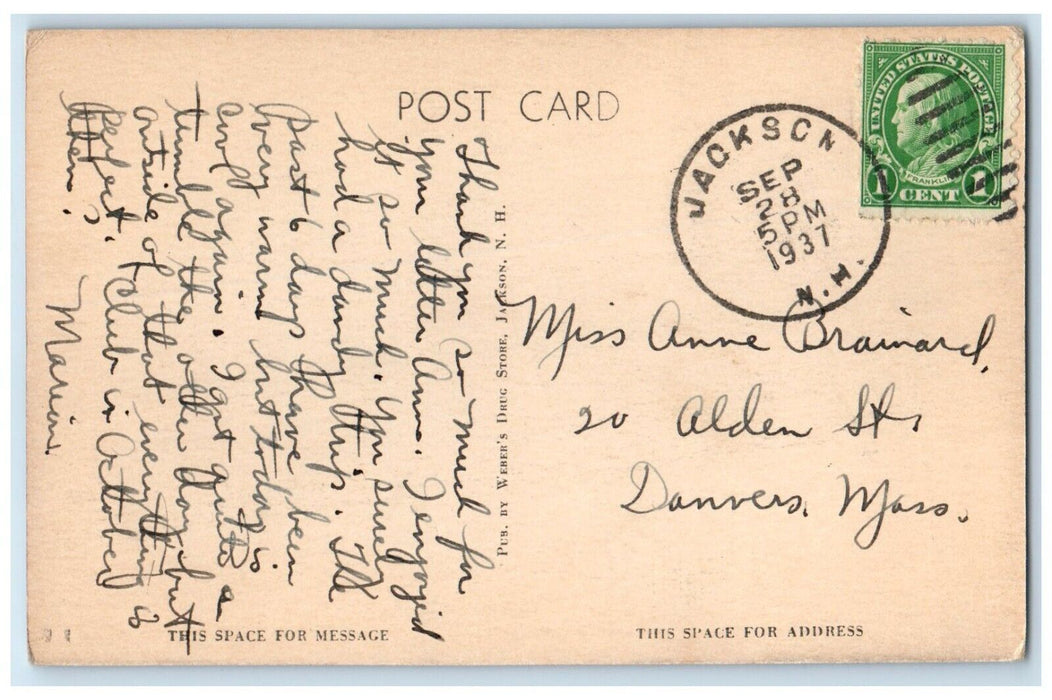 POST CARD
Thank you so much for
your letter Anne. I enjoyed
it so much. You surely
had a dandy trip. The
past 6 days have been
very warm but today is
cool again. I got quite a
tumble the other day but
outside of that everything is
perfect. Club in October
then?
Marion
PUB. BY WEBER'S DRUG STORE, JACKSON, N. H.
THIS SPACE FOR MESSAGE
JACKSON
SEP
28
5 PM
1937
N.H.
UNITED STATES POSTAGE
FRANKLIN
1 CENT 1
Miss Anne Brainard,
20 Alden St.
Danvers, Mass.
THIS SPACE FOR ADDRESS